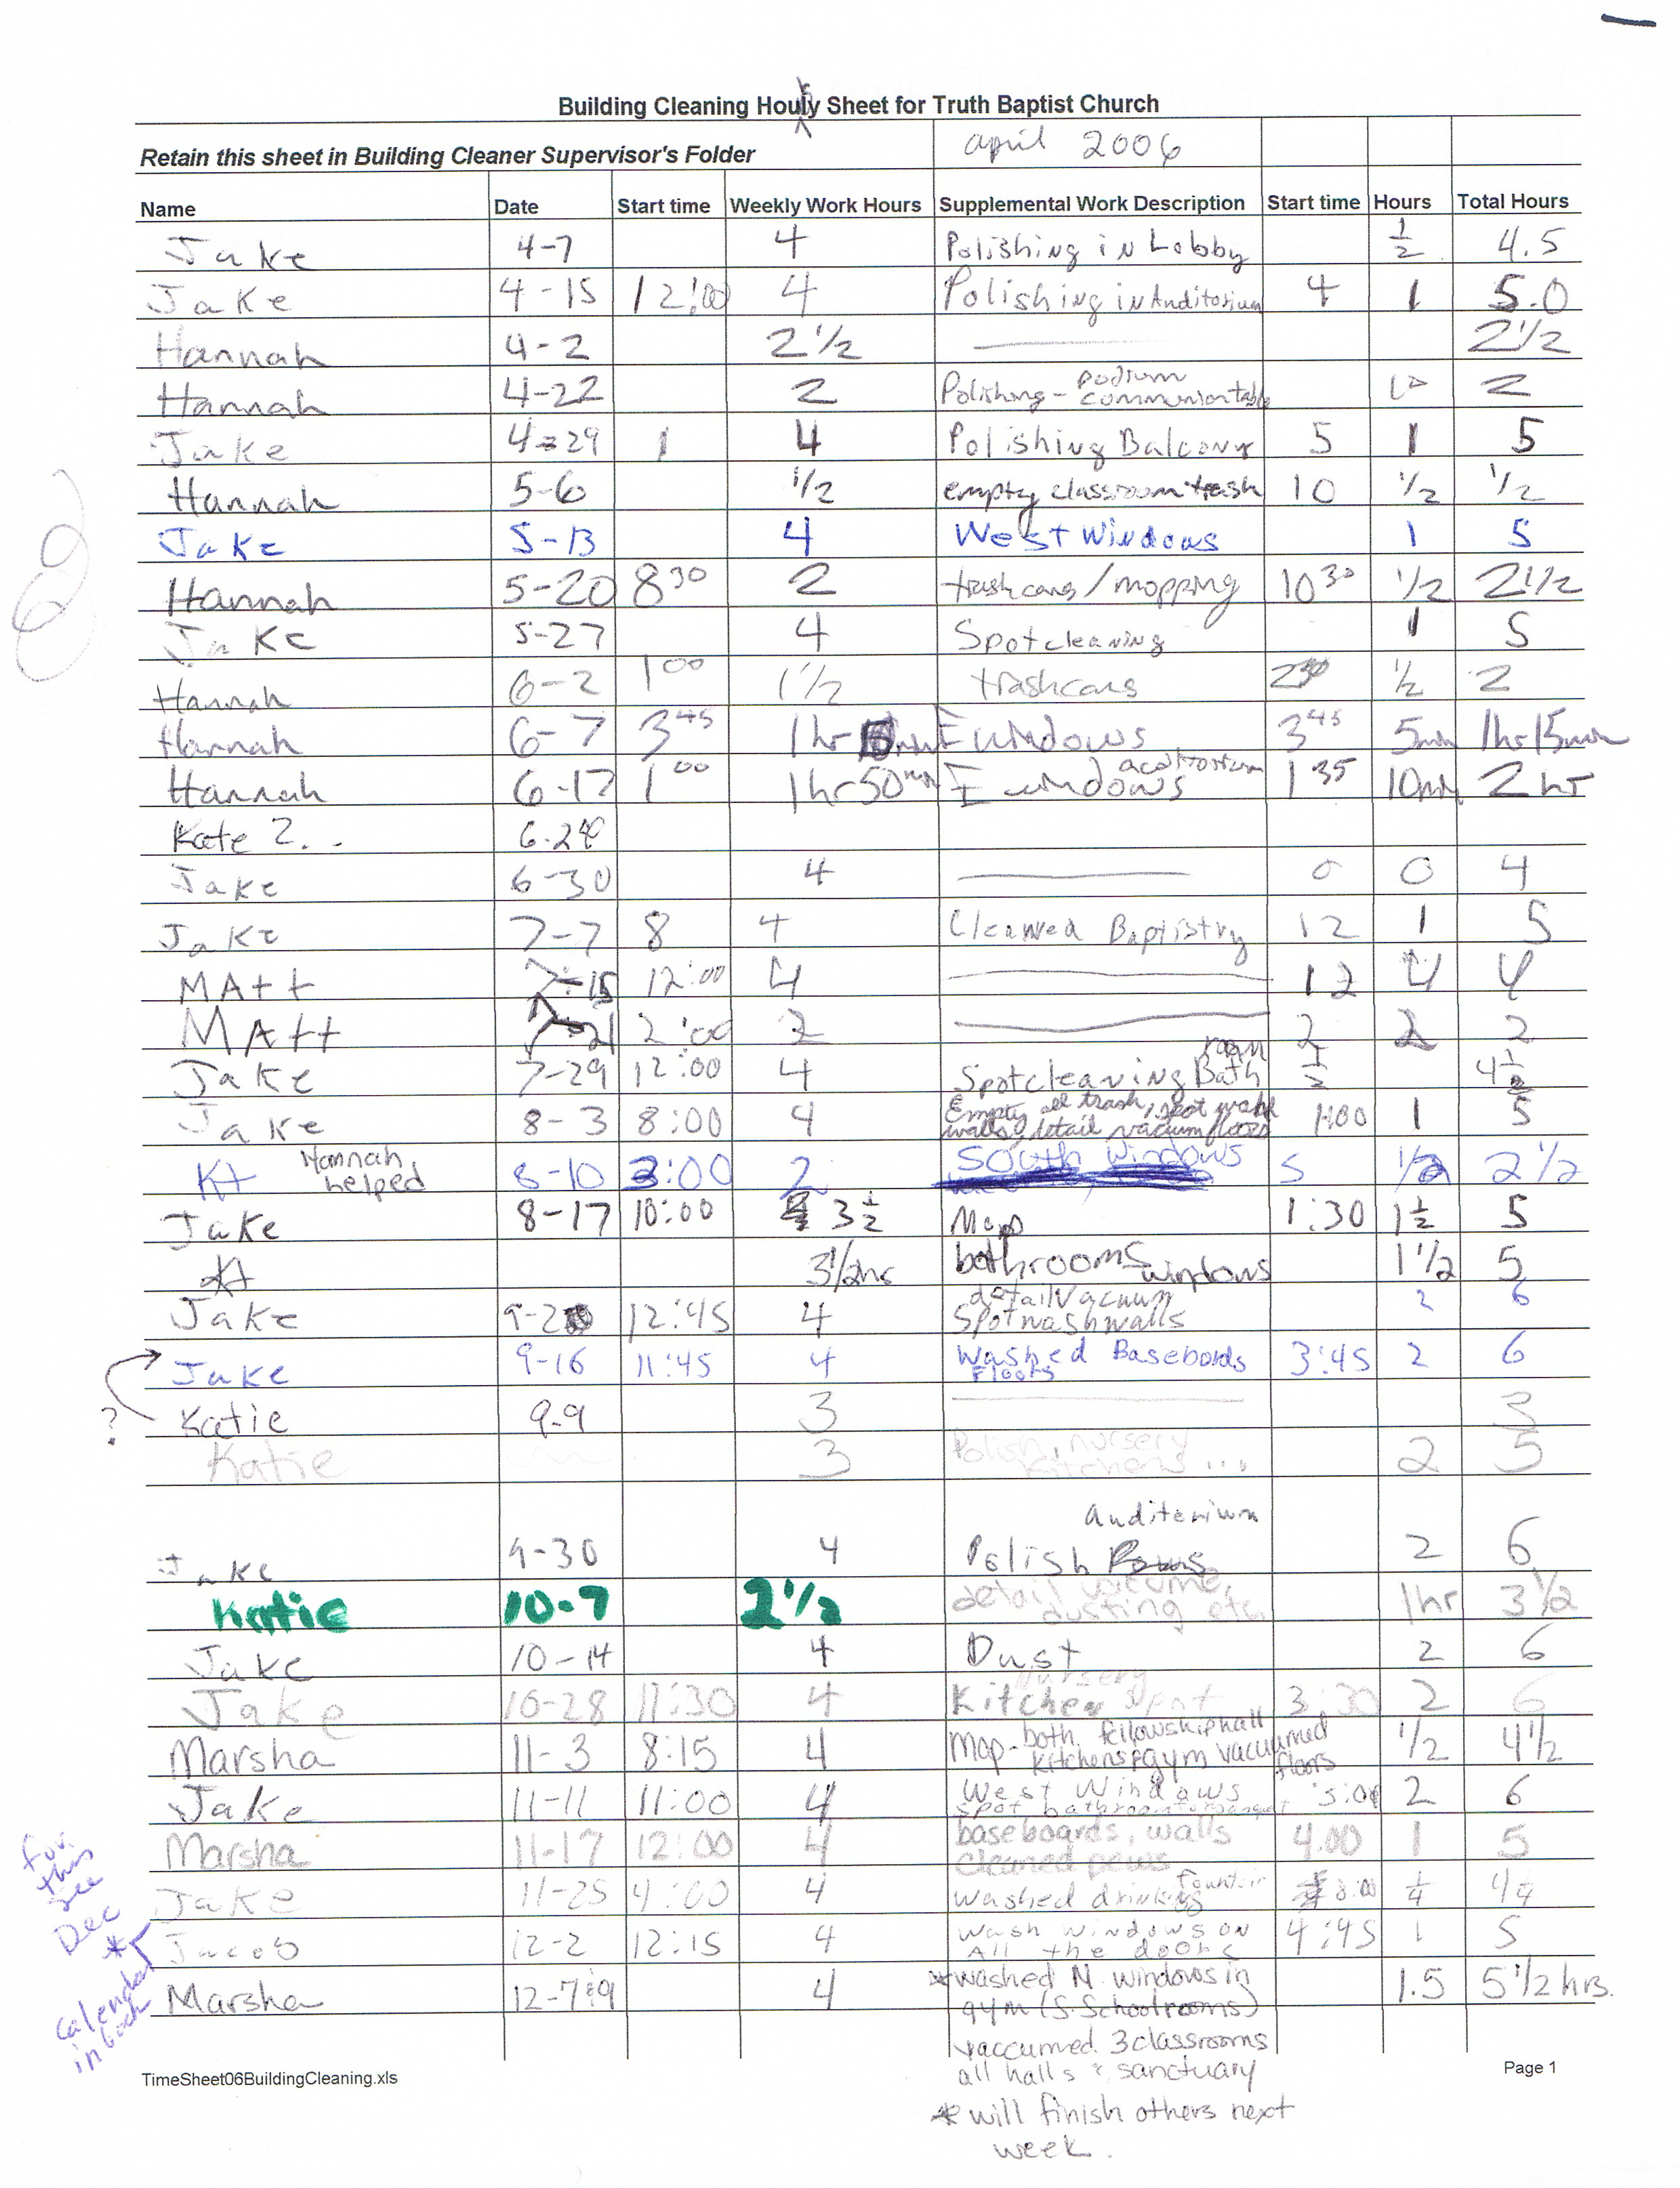 Building Cleaning Hourly Sheet for Truth Baptist Church
Retain this sheet in Building Cleaner Supervisor's Folder april 2006
Name Date Start time Weekly Work Hours Supplemental Work Description Start time Hours Total Hours
Jake 4-7 4 Polishing in Lobby 1/2 4.5
Jake 4-15 12:00 4 Polishing in Auditorium 4 1 5.0
Hannah 4-2 2 1/2 2 1/2
Hannah 4-22 2 Polishing - podium communion table 2
Jake 4-29 1 4 Polishing Balcony 5 1 5
Hannah 5-6 1/2 empty classroom trash 10 1/2 1/2
Jake 5-13 4 West Windows 1 5
Hannah 5-20 8 30 2 trashcans/mopping 10 30 1/2 2 1/2
Jake 5-27 4 Spotcleaning 1 5
Hannah 6-2 1 00 1 1/2 trashcans 2 30 1/2 2
Hannah 6-7 3 45 1hr E windows 3 45 5min 1hr 15min
Hannah 6-17 1 00 1hr 50min E windows auditorium 1 35 10min 2 hr
Kate ?.. 6-24
Jake 6-30 4 0 0 4
Jake 7-7 8 4 Cleaned Baptistry 12 1 5
MAtt 7-15 12:00 4 12 4 4
MAtt 7-21 2:00 2 2 2 2
Jake 7-29 12:00 4 Spotcleaning Bath room 1/2 4 1/2
Jake 8-3 8:00 4 Empty all trash, spot wash walls, detail vacuum floors 1:00 1 5
Kt Hannah helped 8-10 3:00 2 South Windows 5 1/2 2 1/2
Jake 8-17 10:00 3 1/2 Mop 1:30 1 1/2 5
Kt 3 1/2hrs bathrooms windows 1 1/2 5
Jake 9-2 12:45 4 detail vacuum Spotwash walls 2 6
Jake 9-16 11:45 4 Washed Basebords Floors 3:45 2 6
? Katie 9-9 3 3
Katie 3 Polish, nursery kitchens ... 2 5
Jake 9-30 4 Polish Pews Auditerium 2 6
Katie 10-7 2 1/2 detail vacume, dusting etc. 1hr 3 1/2
Jake 10-14 4 Dust 2 6
Jake 10-28 11:30 4 Kitchen nursery spot 3:30 2 6
Marsha 11-3 8:15 4 Mop - both fellowship hall kitchens & gym vacuumed floors 1/2 4 1/2
Jake 11-11 11:00 4 West Windows spot bathroom 3:00 2 6
Marsha 11-17 12:00 4 baseboards, walls cleaned pews 4:00 1 5
Jake 11-25 4:00 4 washed drinking fountain 8:00 1/4 4 1/4
Jacob 12-2 12:15 4 wash windows on All the doors 4:45 1 5
Marsha 12-7&9 4 *washed N. windows in gym (S. School rooms) 1.5 5 1/2 hrs.
vaccumed 3 classrooms
all halls & sanctuary
* will finish others next
week.
for this see Dec * calendar in back
TimeSheet06BuildingCleaning.xls Page 1